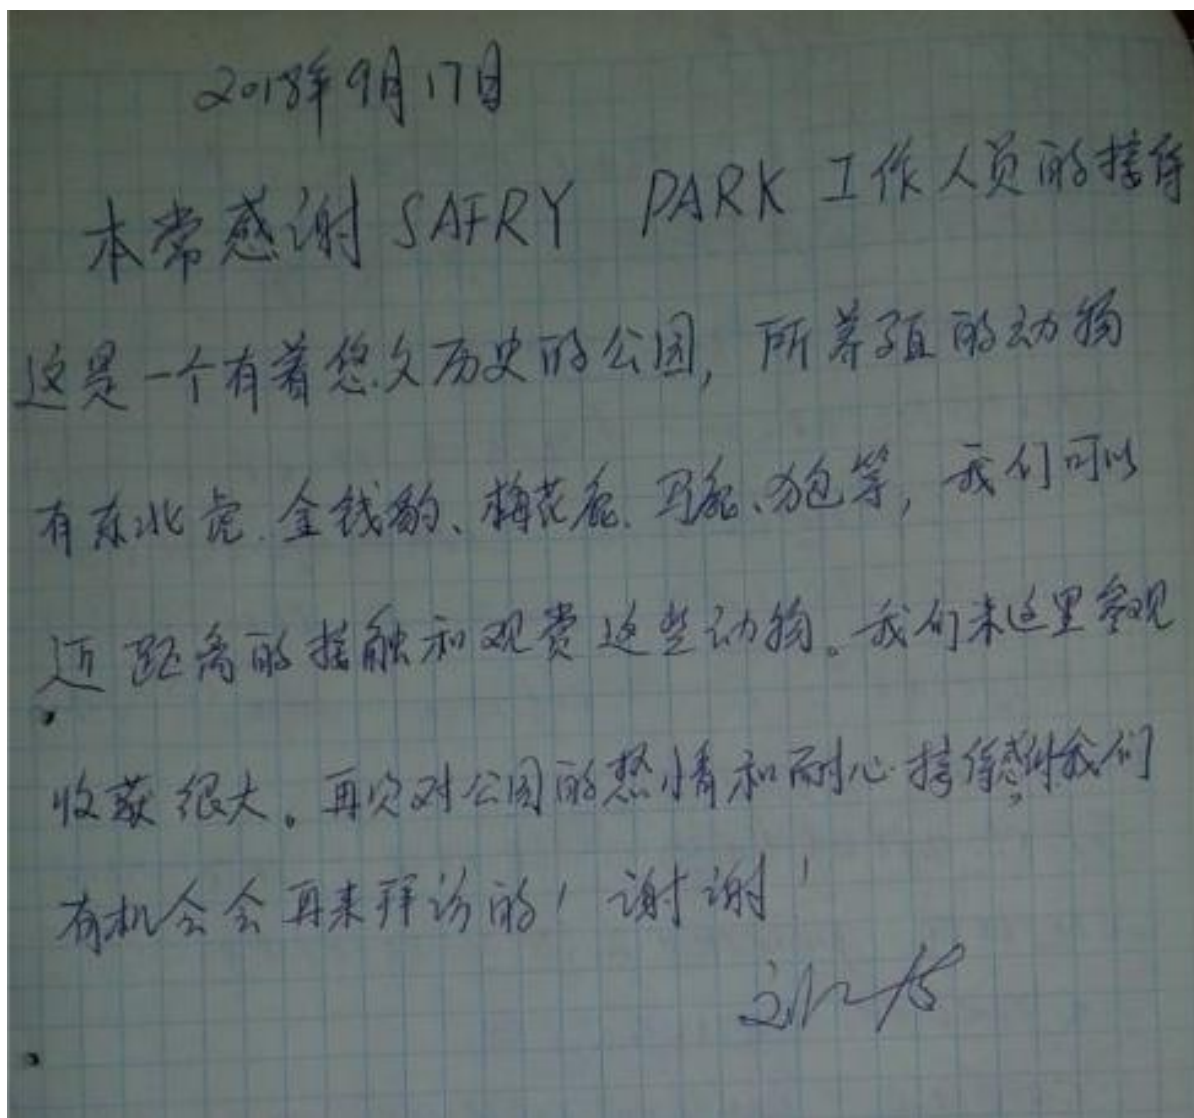 2018年9月17日
本常感谢 SAFRY PARK 工作人员的接待
这是一个有着悠久历史的公园, 所养殖的动物
有东北虎、金钱豹、梅花鹿、马鹿、狍等, 我们可以
近距离的接触和观赏这些动物。我们来这里参观
收获很大。再次对公园的热情和耐心接待感谢,我们
有机会会再来拜访的! 谢谢!